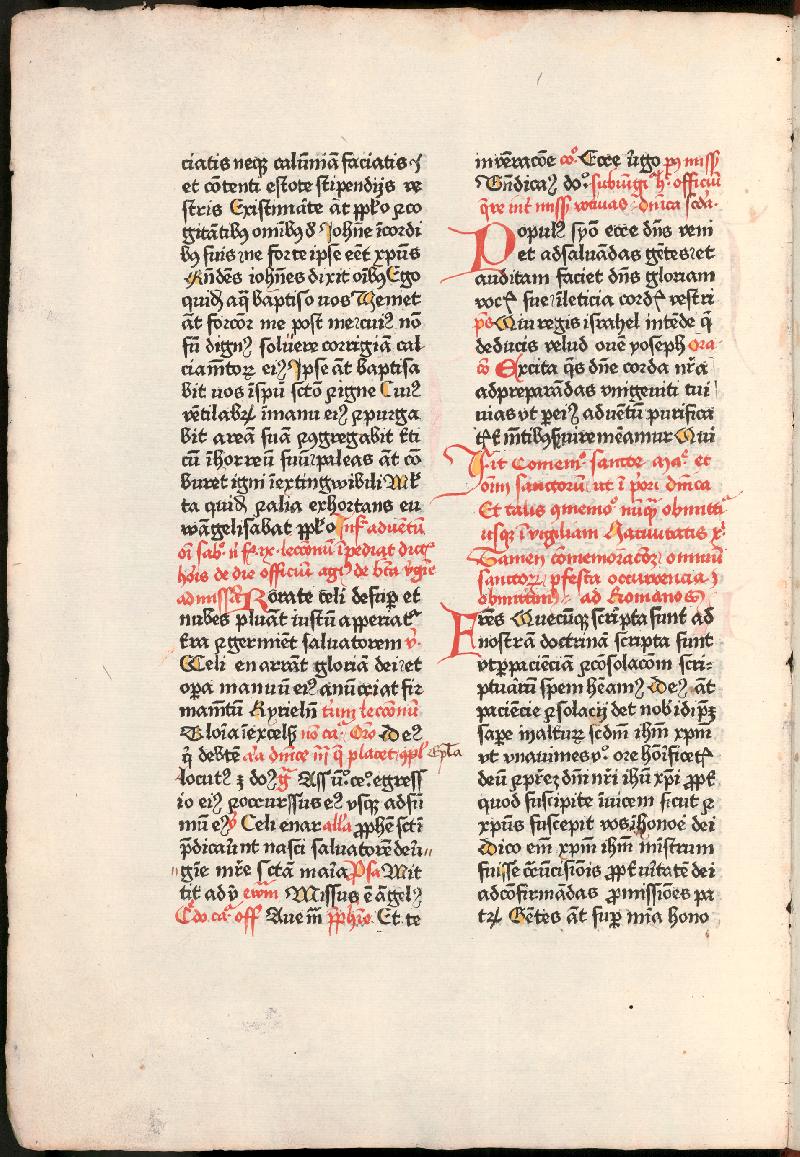 ciatis neqz calūniā faciatis ⁊
et cōtenti estote stipendijs ve
stris Existimāte āt pp̄lo ⁊ co
gitātibꝰ omībꝰ d̄ Johāne ī cordi
bꝯ suis ne forte ipse eēt xpūs
Rn̄dēs iohān̄es dixit oībꝰ Ego
quidē aq̄ baptiso uos Veniet
āt forcōr me post me cuiꝰ nō
sū dignꝰ soluere corrigiā cal
ciam̄tor eiꝰ Ipse āt baptisa
bit uos ī spū sctō ⁊ igne Cuiꝰ
vētilabrꝫ ī manu eiꝰ ⁊ purga
bit areā suā ⁊ ꝯgregabit t̄ti
cū ī horreū suū paleas āt cō
buret igni īextingwibili Ml̄
ta quidē ⁊ alia exhortans eu
wāgelisabat pp̄lo Inf̄ aduētū
oī sabꝰ
hōis de die officiū agꝰ de bt̄a v̄gīe
ad missā Rorate celi desup̄ et
nubes pluāt iustū apperiatꝛ
t̄ra ⁊ germiēt saluatorem v̄
Celi enarrāt gloriā dei et
opa manuū eiꝰ anūcciat fir
mam̄tū Kyrieln̄ tūm leccōnū
Gloīa ī excelꝭ nō caꝰ Orō Deꝰ
q̄ de bt̄e a'ia dn̄ice iij q̄ placet ep̄la
locutꝰ ⁊ dōꝫ g̊ Ass ū ce egress
io eiꝰ ⁊ occurssus eꝰ vsqꝫ ad sū
mū eꝰ v̊ Celi enar alla pphē sctī
p̄dicauūt nasci saluatorē de ūi
gīe mr̄e sctā maīa Psā Mit
tit ad v̄ ewm̄ Missus ē āgelꝰ
Cdo caꝰ off Aue m̄ pphīe Et te
in venacōe cōꝰ Ecce v̄go
Bn̄dicaꝰ doꝰ subiūgiꝰ hꝰ officiū
q̄re int̄ missꝭ votiuas dn̄ica scdā
Populꝰ syō ecce dn̄s veni
et ad saluādas gētes et
auditam faciet dn̄s gloriam
vocꝭ sue ī leticia cordꝭ vestri
ps Qui regis israhel intēde q̄
deducis velud ouē yoseph ora
cō Excita q̄s dn̄e corda nr̄a
ad preparādas vnigeniti tui
uias vt ꝑ eiꝰ aduētū purifica
tꝭ mētibꝰ ẜuire meāmur Qui
Fit Comemꝰ sanctoꝝ maꝰ et
oīm sanctorū ut ī p̄ori dn̄ica
Et talis ꝯmemoꝰ nūqꝫ obmitti
usqꝫ ī vigiliam Natiuitatis x
Tamen cōmemoracōꝫ omniū
sanctoꝝ ꝓ festa occurrencia
obmittimꝰ ad Romanos
Fres Quecūqꝫ scripta sunt ad
nostrā doctrinā scripta sunt
vt ꝑ paciēciā ⁊ cōsolacōm scri
ptuārū spem heamꝰ Deꝰ āt
paciēcie ⁊ solacij det nobꝭ idipꝫ
sape in altutꝝ scdm̄ ihm̄ xpm̄
vt vnanimes vꝰ ore hōificetꝭ
deū ⁊ pr̄eꝫ dn̄i nr̄i ihū xp̄i ꝓpt̄
quod suscipite īuicem sicut ⁊
xpūs suscepit vos ī honoē dei
Dico em̄ xpm̄ ihm̄ mīstrum
fuisse c̄rcūcisiōnis ꝓpt̄ v̄itatē dei
ad cōfirmādas ꝓmissiōnes pa
tꝝ Gētes āt suꝑ mīa hono